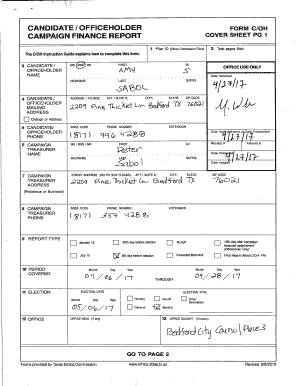 CANDIDATE / OFFICEHOLDER FORM C/OH
CAMPAIGN FINANCE REPORT COVER SHEET PG 1
The C/OH Instruction Guide explains how to complete this form.
1 Filer ID (Ethics Commission Filers) 2 Total pages filed:
3 CANDIDATE / OFFICEHOLDER NAME
MS / MRS / MR FIRST MI
AMY S
NICKNAME LAST SUFFIX
SABOL
OFFICE USE ONLY
Date Received
4/27/17
4 CANDIDATE / OFFICEHOLDER MAILING ADDRESS
ADDRESS / PO BOX; APT / SUITE #; CITY; STATE; ZIP CODE
2209 Pine Thicket Ln Bedford TX 76021
Change of Address
5 CANDIDATE / OFFICEHOLDER PHONE
AREA CODE PHONE NUMBER EXTENSION
(817) 996 4288
4/27/17
6 CAMPAIGN TREASURER NAME
MS / MRS / MR FIRST MI
Peter
NICKNAME LAST SUFFIX
Sabol
Receipt # Amount $
Date Processed
4/27/17
Date Imaged
4/27/17
7 CAMPAIGN TREASURER ADDRESS
(Residence or Business)
STREET ADDRESS (NO PO BOX PLEASE); APT / SUITE #; CITY; STATE; ZIP CODE
2209 Pine Thicket Ln Bedford TX 76021
8 CAMPAIGN TREASURER PHONE
AREA CODE PHONE NUMBER EXTENSION
(817) 354 4288
9 REPORT TYPE
January 15 30th day before election Runoff 15th day after campaign treasurer appointment (Officeholder Only)
July 15 8th day before election Exceeded $500 limit Final Report (Attach C/OH - FR)
10 PERIOD COVERED
Month Day Year Month Day Year
04/06/17 THROUGH 04/28/17
11 ELECTION
ELECTION DATE ELECTION TYPE
Month Day Year Primary Runoff Other Description
05/06/17 General Special
12 OFFICE OFFICE HELD (if any) 13 OFFICE SOUGHT (if known)
Bedford City Council Place 3
GO TO PAGE 2
Forms provided by Texas Ethics Commission www.ethics.state.tx.us Revised 9/8/2015